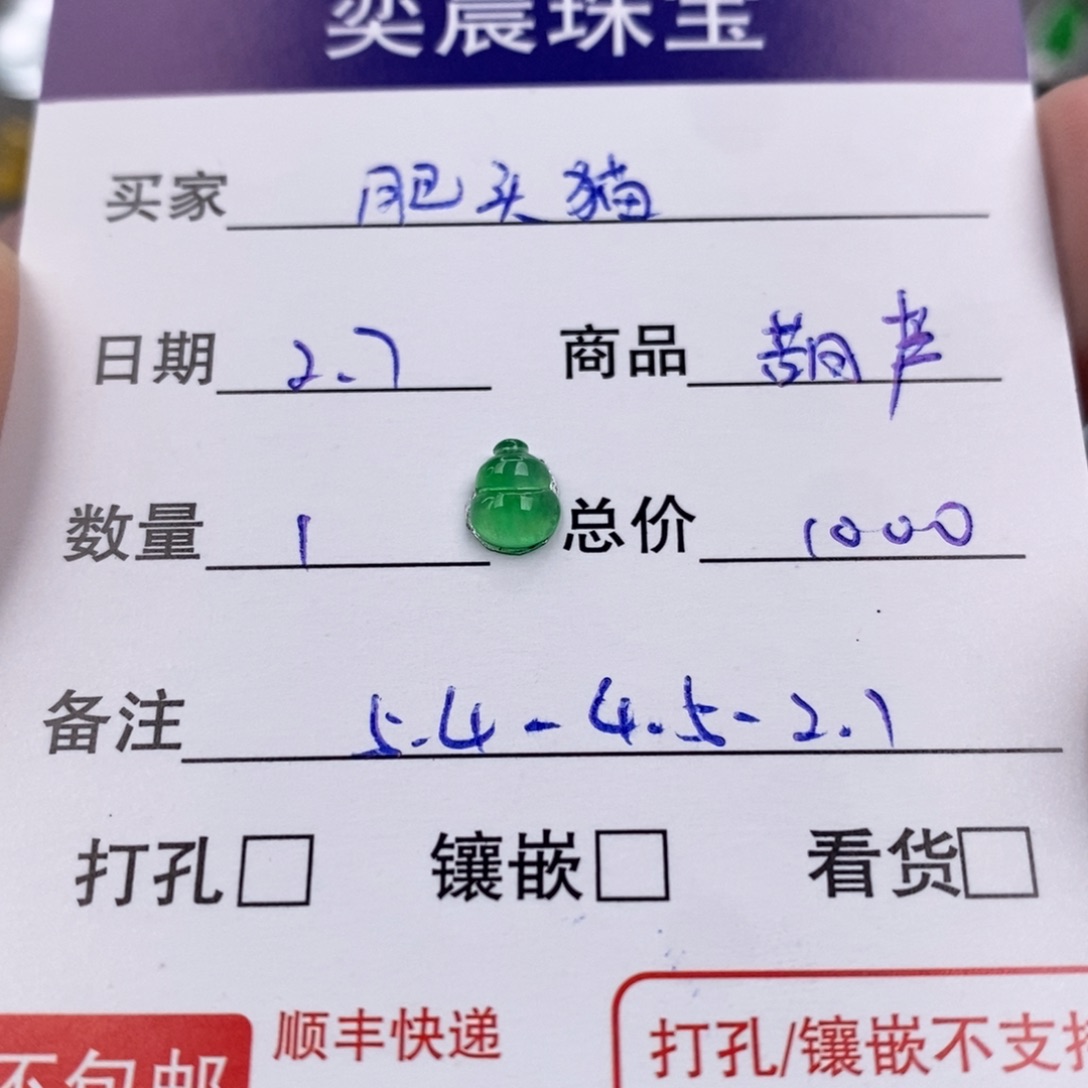 奕晨珠宝
买家 肥头猫
日期 2.7 商品 葫芦
数量 1 总价 1000
备注 5.4-4.5-2.1
打孔□ 镶嵌□ 看货□
不包邮 顺丰快递 打孔/镶嵌不支持